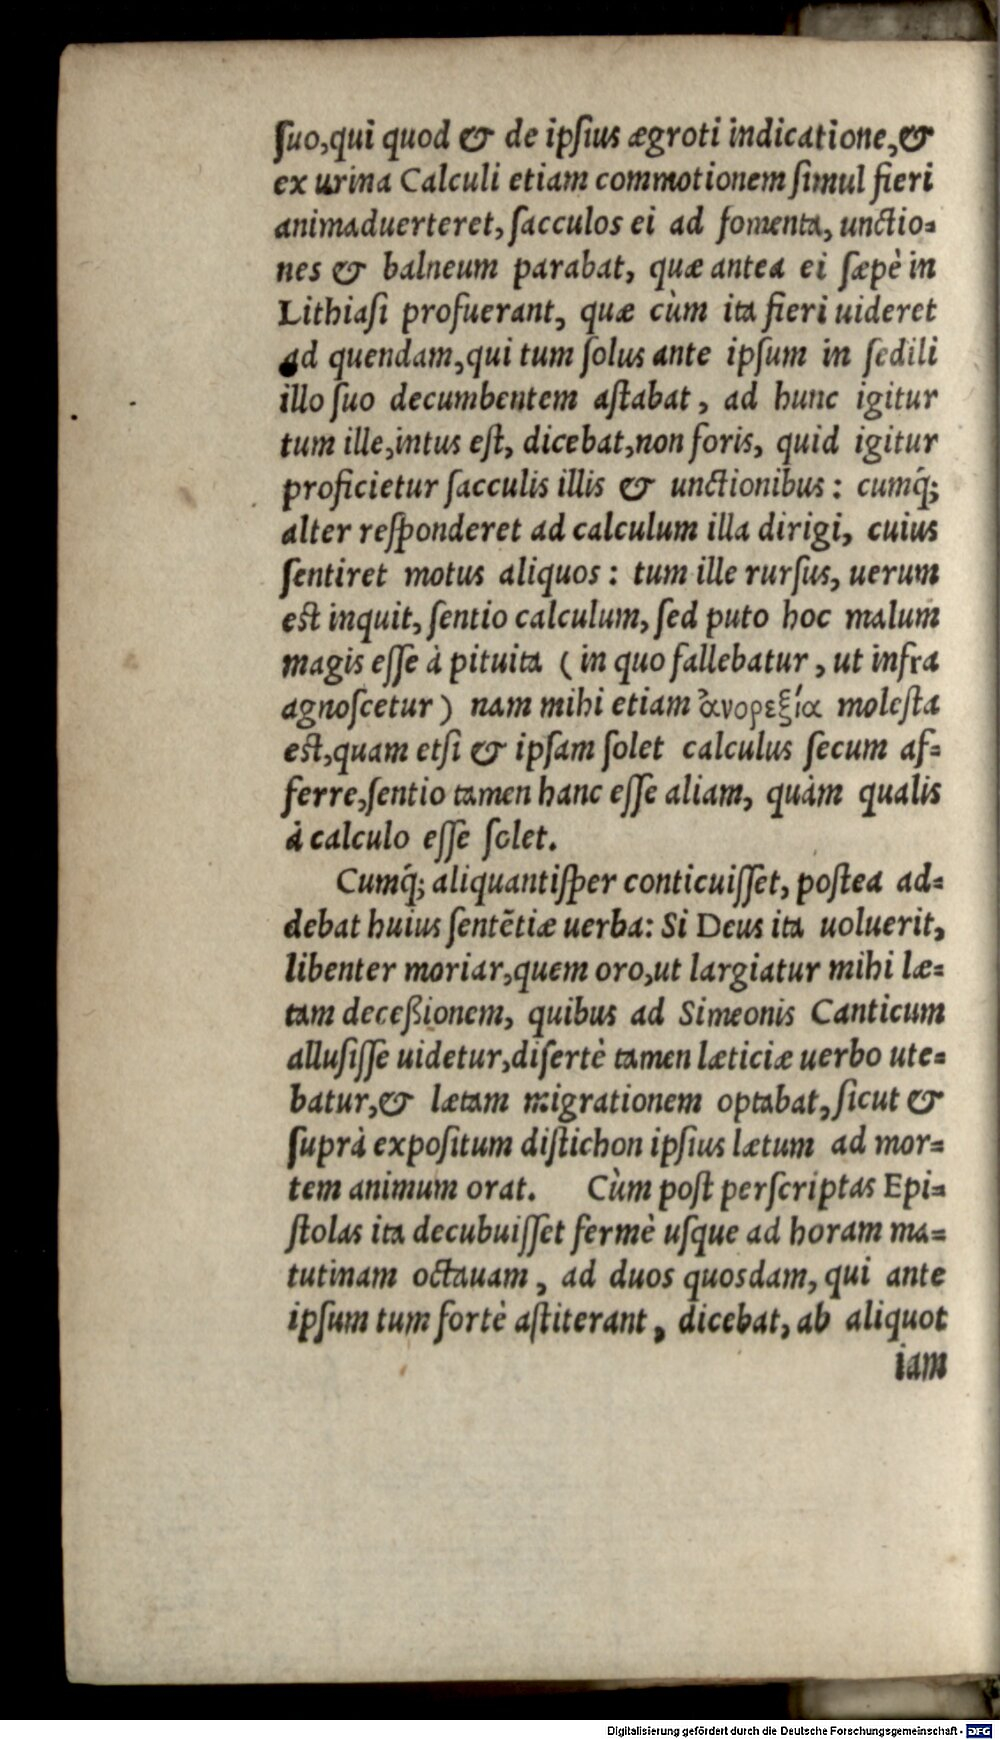 ſuo,qui quod & de ipſius ægroti indicatione,&
ex urina Calculi etiam commotionem ſimul fieri
animaduerteret, ſacculos ei ad fomenta, unctio=
nes & balneum parabat, quæ antea ei ſæpè in
Lithiaſi profuerant, quæ cùm ita fieri uideret
ad quendam,qui tum ſolus ante ipſum in ſedili
illo ſuo decumbentem aſtabat, ad hunc igitur
tum ille,intus eſt, dicebat,non foris, quid igitur
proficietur ſacculis illis & unctionibus: cumq́;
alter reſponderet ad calculum illa dirigi, cuius
ſentiret motus aliquos: tum ille rurſus, uerum
eſt inquit, ſentio calculum, ſed puto hoc malum
magis eſſe à pituita (in quo fallebatur, ut infra
agnoſcetur) nam mihi etiam ἀνορεξία moleſta
eſt,quam etſi & ipſam ſolet calculus ſecum af=
ferre,ſentio tamen hanc eſſe aliam, quàm qualis
à calculo eſſe ſolet.
Cumq́; aliquantiſper conticuiſſet, poſtea ad=
debat huius ſentētiæ uerba: Si Deus ita uoluerit,
libenter moriar,quem oro,ut largiatur mihi læ=
tam deceßionem, quibus ad Simeonis Canticum
alluſiſſe uidetur,diſertè tamen læticiæ uerbo ute=
batur,& lætam migrationem optabat, ſicut &
ſuprà expoſitum diſtichon ipſius lætum ad mor=
tem animum orat. Cùm poſt perſcriptas Epi=
ſtolas ita decubuiſſet fermè uſque ad horam ma=
tutinam octauam, ad duos quosdam, qui ante
ipſum tum fortè aſtiterant, dicebat, ab aliquot
iam
Digitalisierung gefördert durch die Deutsche Forschungsgemeinschaft - DFG